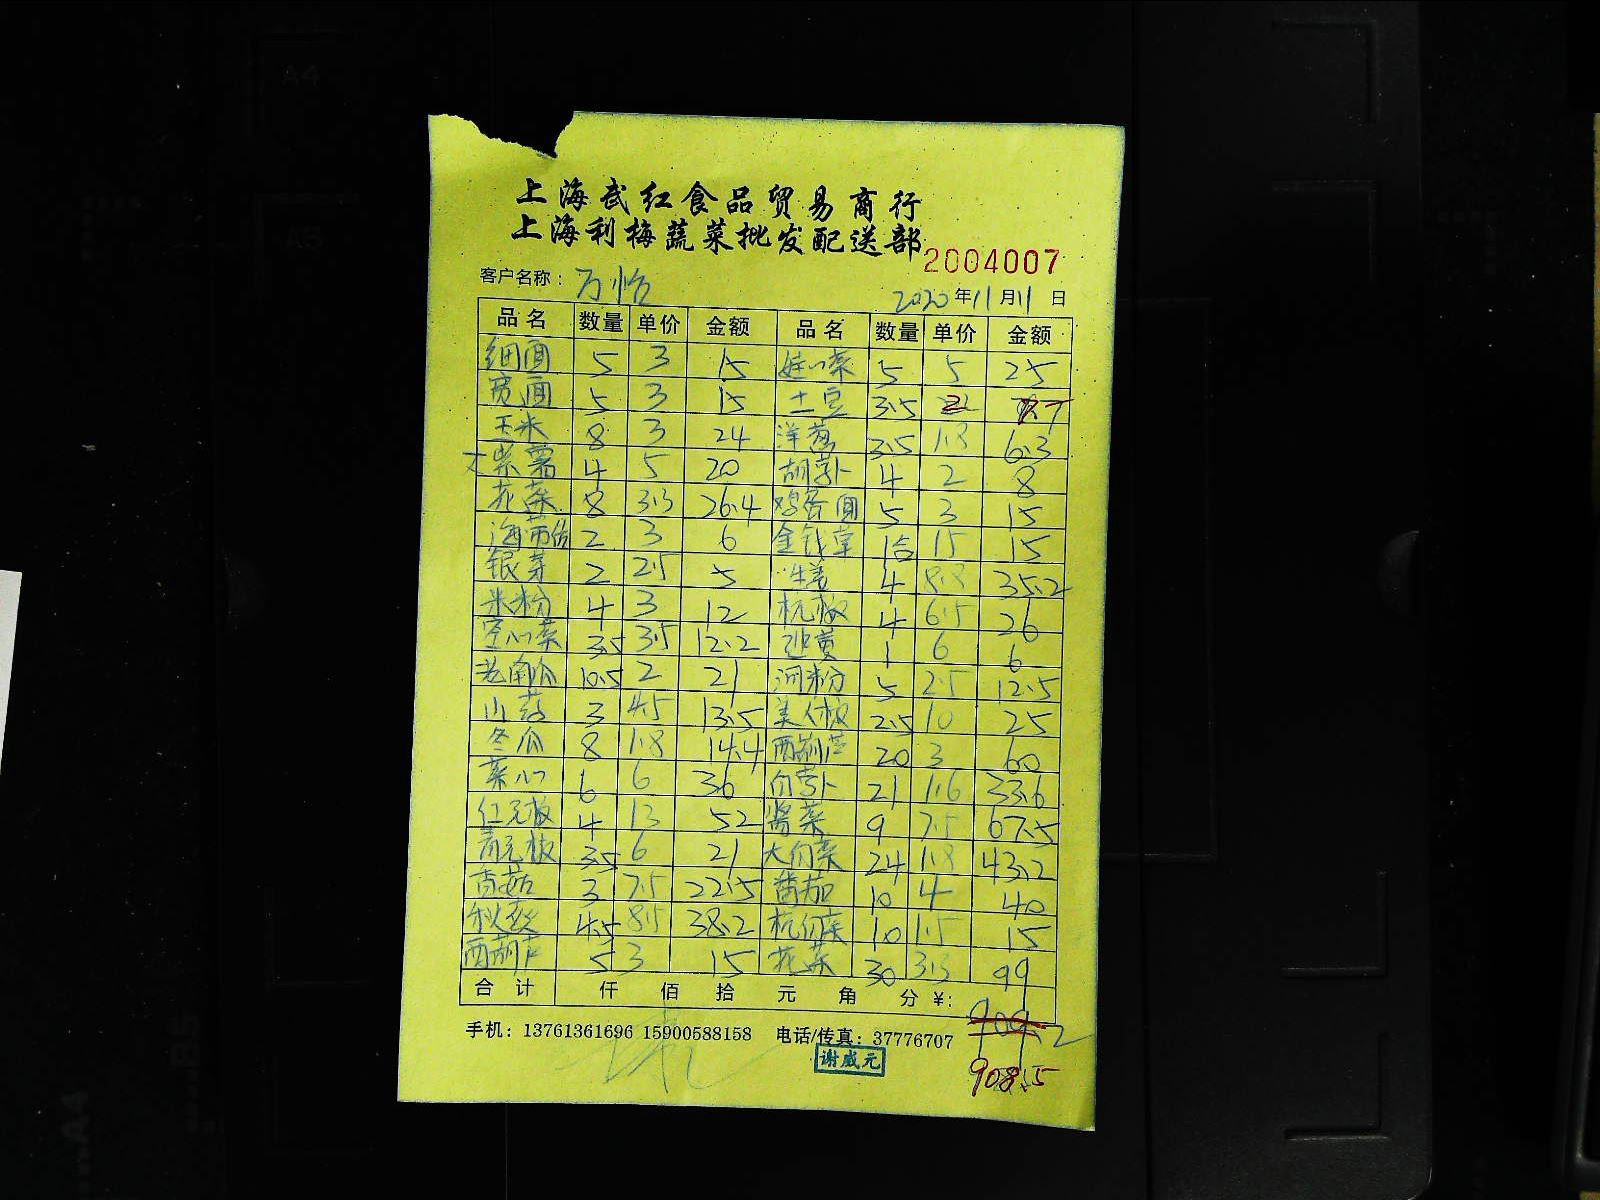 上海武红食品贸易商行
上海利梅蔬菜批发配送部
2004007
客户名称：万怡 2020年11月11日
品名 数量 单价 金额 品名 数量 单价 金额
细面 5 3 15 娃心菜 5 5 25
宽面 5 3 15 土豆 3.5 2 7
玉米 8 3 24 洋葱 3.5 1.8 6.3
大紫薯 4 5 20 胡萝卜 4 2 8
花菜 8 3.3 26.4 鸡蛋面 5 3 15
海带结 2 3 6 金钱草 1合 15 15
银芽 2 2.5 5 生姜 4 8.8 35.2
米粉 4 3 12 杭椒 4 6.5 26
空心菜 3.5 3.5 12.2 韭黄 1 6 6
老南瓜 10.5 2 21 河粉 5 2.5 12.5
山药 3 4.5 13.5 美人椒 2.5 10 25
冬瓜 8 1.8 14.4 西葫芦 20 3 60
菜心 6 6 36 白萝卜 21 1.6 33.6
红元椒 4 13 52 酱菜 9 7.5 67.5
青元椒 3.5 6 21 大白菜 24 1.8 43.2
香菇 3 7.5 22.5 番茄 10 4 40
秋葵 4.5 8.5 38.2 杭白菜 10 1.5 15
西葫芦 5 3 15 花菜 30 3.3 99
合计 仟 佰 拾 元 角 分 ¥: 909.2
手机：13761361696 15900588158 电话/传真：37776707
谢威元
908.5